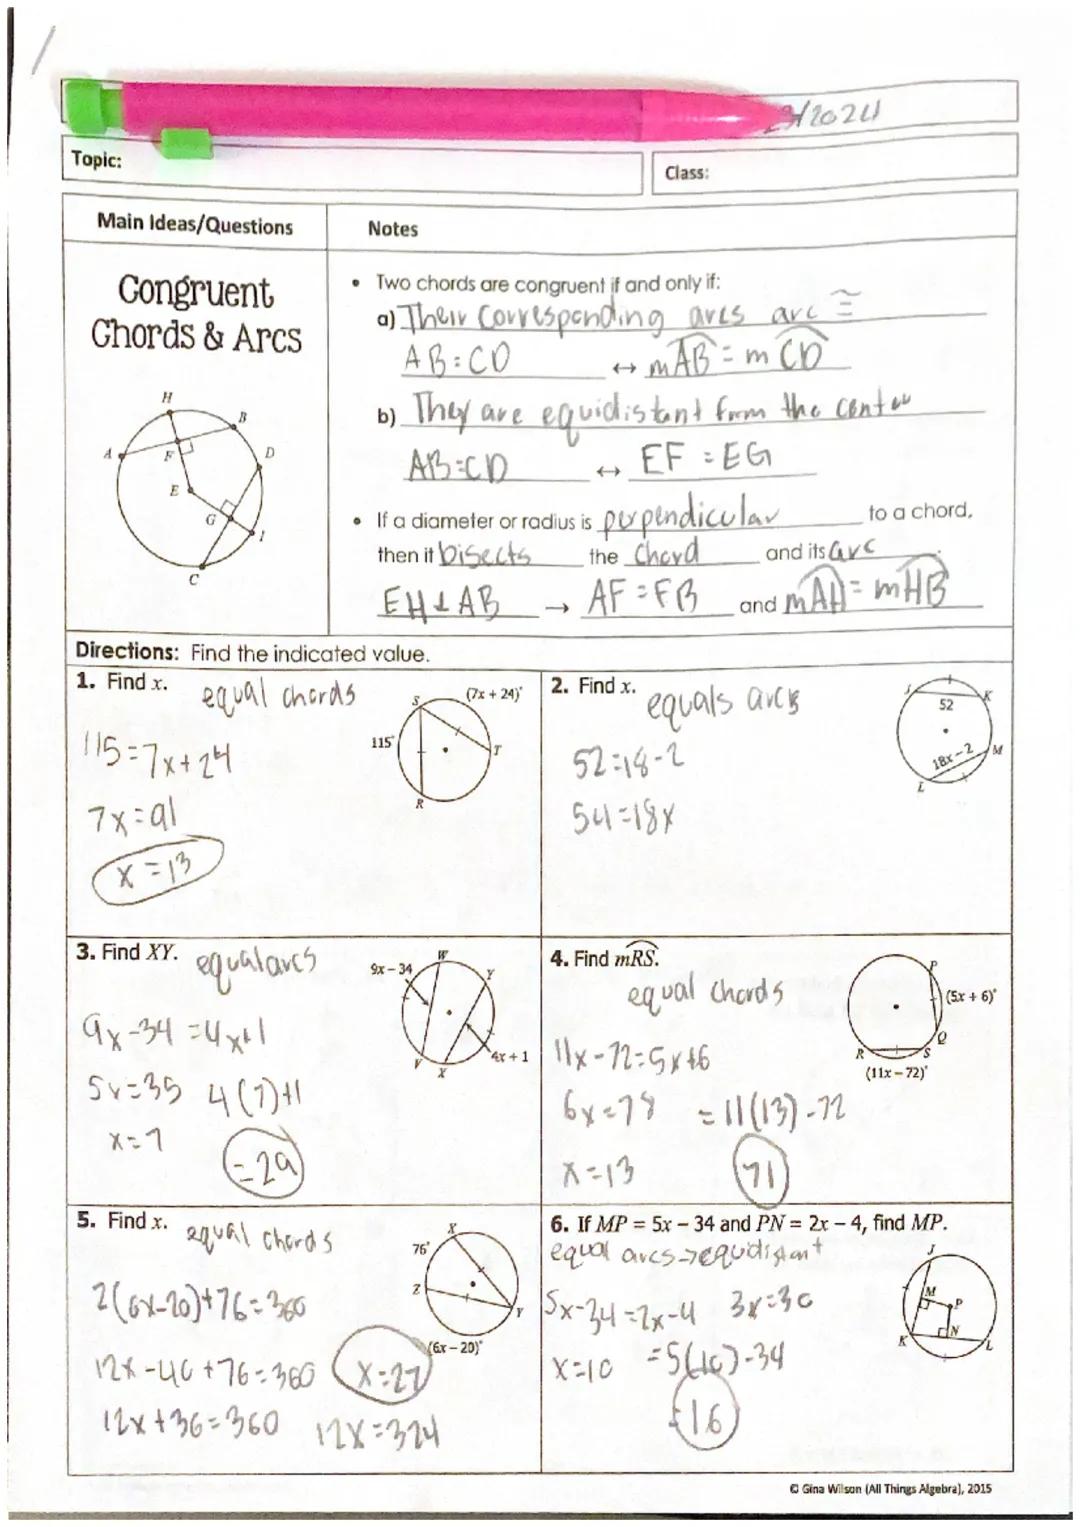 /2024
Topic:
Class:
Main Ideas/Questions
Notes
Congruent
Chords & Arcs
H
B
A
F
D
E
G
I
C
• Two chords are congruent if and only if:
a) Their Corresponding arcs arc ≅
AB=CD ↔ mAB = m CD
b) They are equidistant from the center
AB=CD ↔ EF = EG
• If a diameter or radius is perpendicular to a chord,
then it bisects the chord and its arc.
EH⊥AB → AF = FB and mAH = mHB
Directions: Find the indicated value.
1. Find x.
equal chords
S
(7x + 24)°
115°
T
R
115=7x+24
7x=91
x=13
2. Find x.
equals arcs
J
K
52
18x – 2
M
L
52=18-2
54=18x
3. Find XY.
equal arcs
W
9x – 34
Y
4x + 1
V
X
9x-34=4x+1
5x=35 4(7)+1
x=7
=29
4. Find mRS.
equal chords
P
(5x + 6)°
Q
R
S
(11x – 72)°
11x-72=5x+6
6x=78 =11(13)-72
x=13
71
5. Find x.
equal chords
X
76°
Z
Y
(6x – 20)°
2(6x-20)+76=360
12x-40+76=360
x=27
12x+36=360 12x=324
6. If MP = 5x – 34 and PN = 2x – 4, find MP.
equal arcs→equidistant
J
M
P
K
N
L
5x-34=2x-4 3x=30
x=10 =5(10)-34
=16
© Gina Wilson (All Things Algebra), 2015